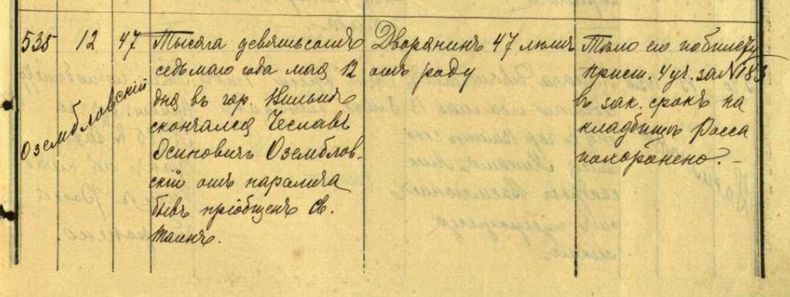 535
12
47
Озембловскій
Тысяча девятьсотъ
седьмаго года мая 12
дня въ гор. Вильнѣ
скончался Чеславъ
Осиповичъ Оземблов-
скій отъ паралича
бывъ пріобщенъ св.
таинъ.
Дворянинъ 47 лѣтъ
отъ роду
Тѣло его по билету
прист. 4 уч. за № 183
въ зак. срокъ на
кладбищѣ Росса
похоронено. –